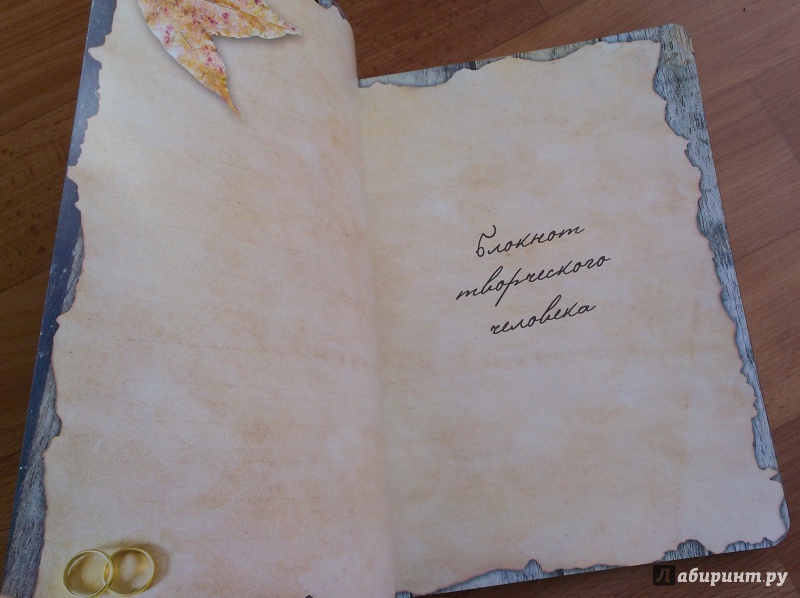 Блокнот
творческого
человека
Лабиринт.ру